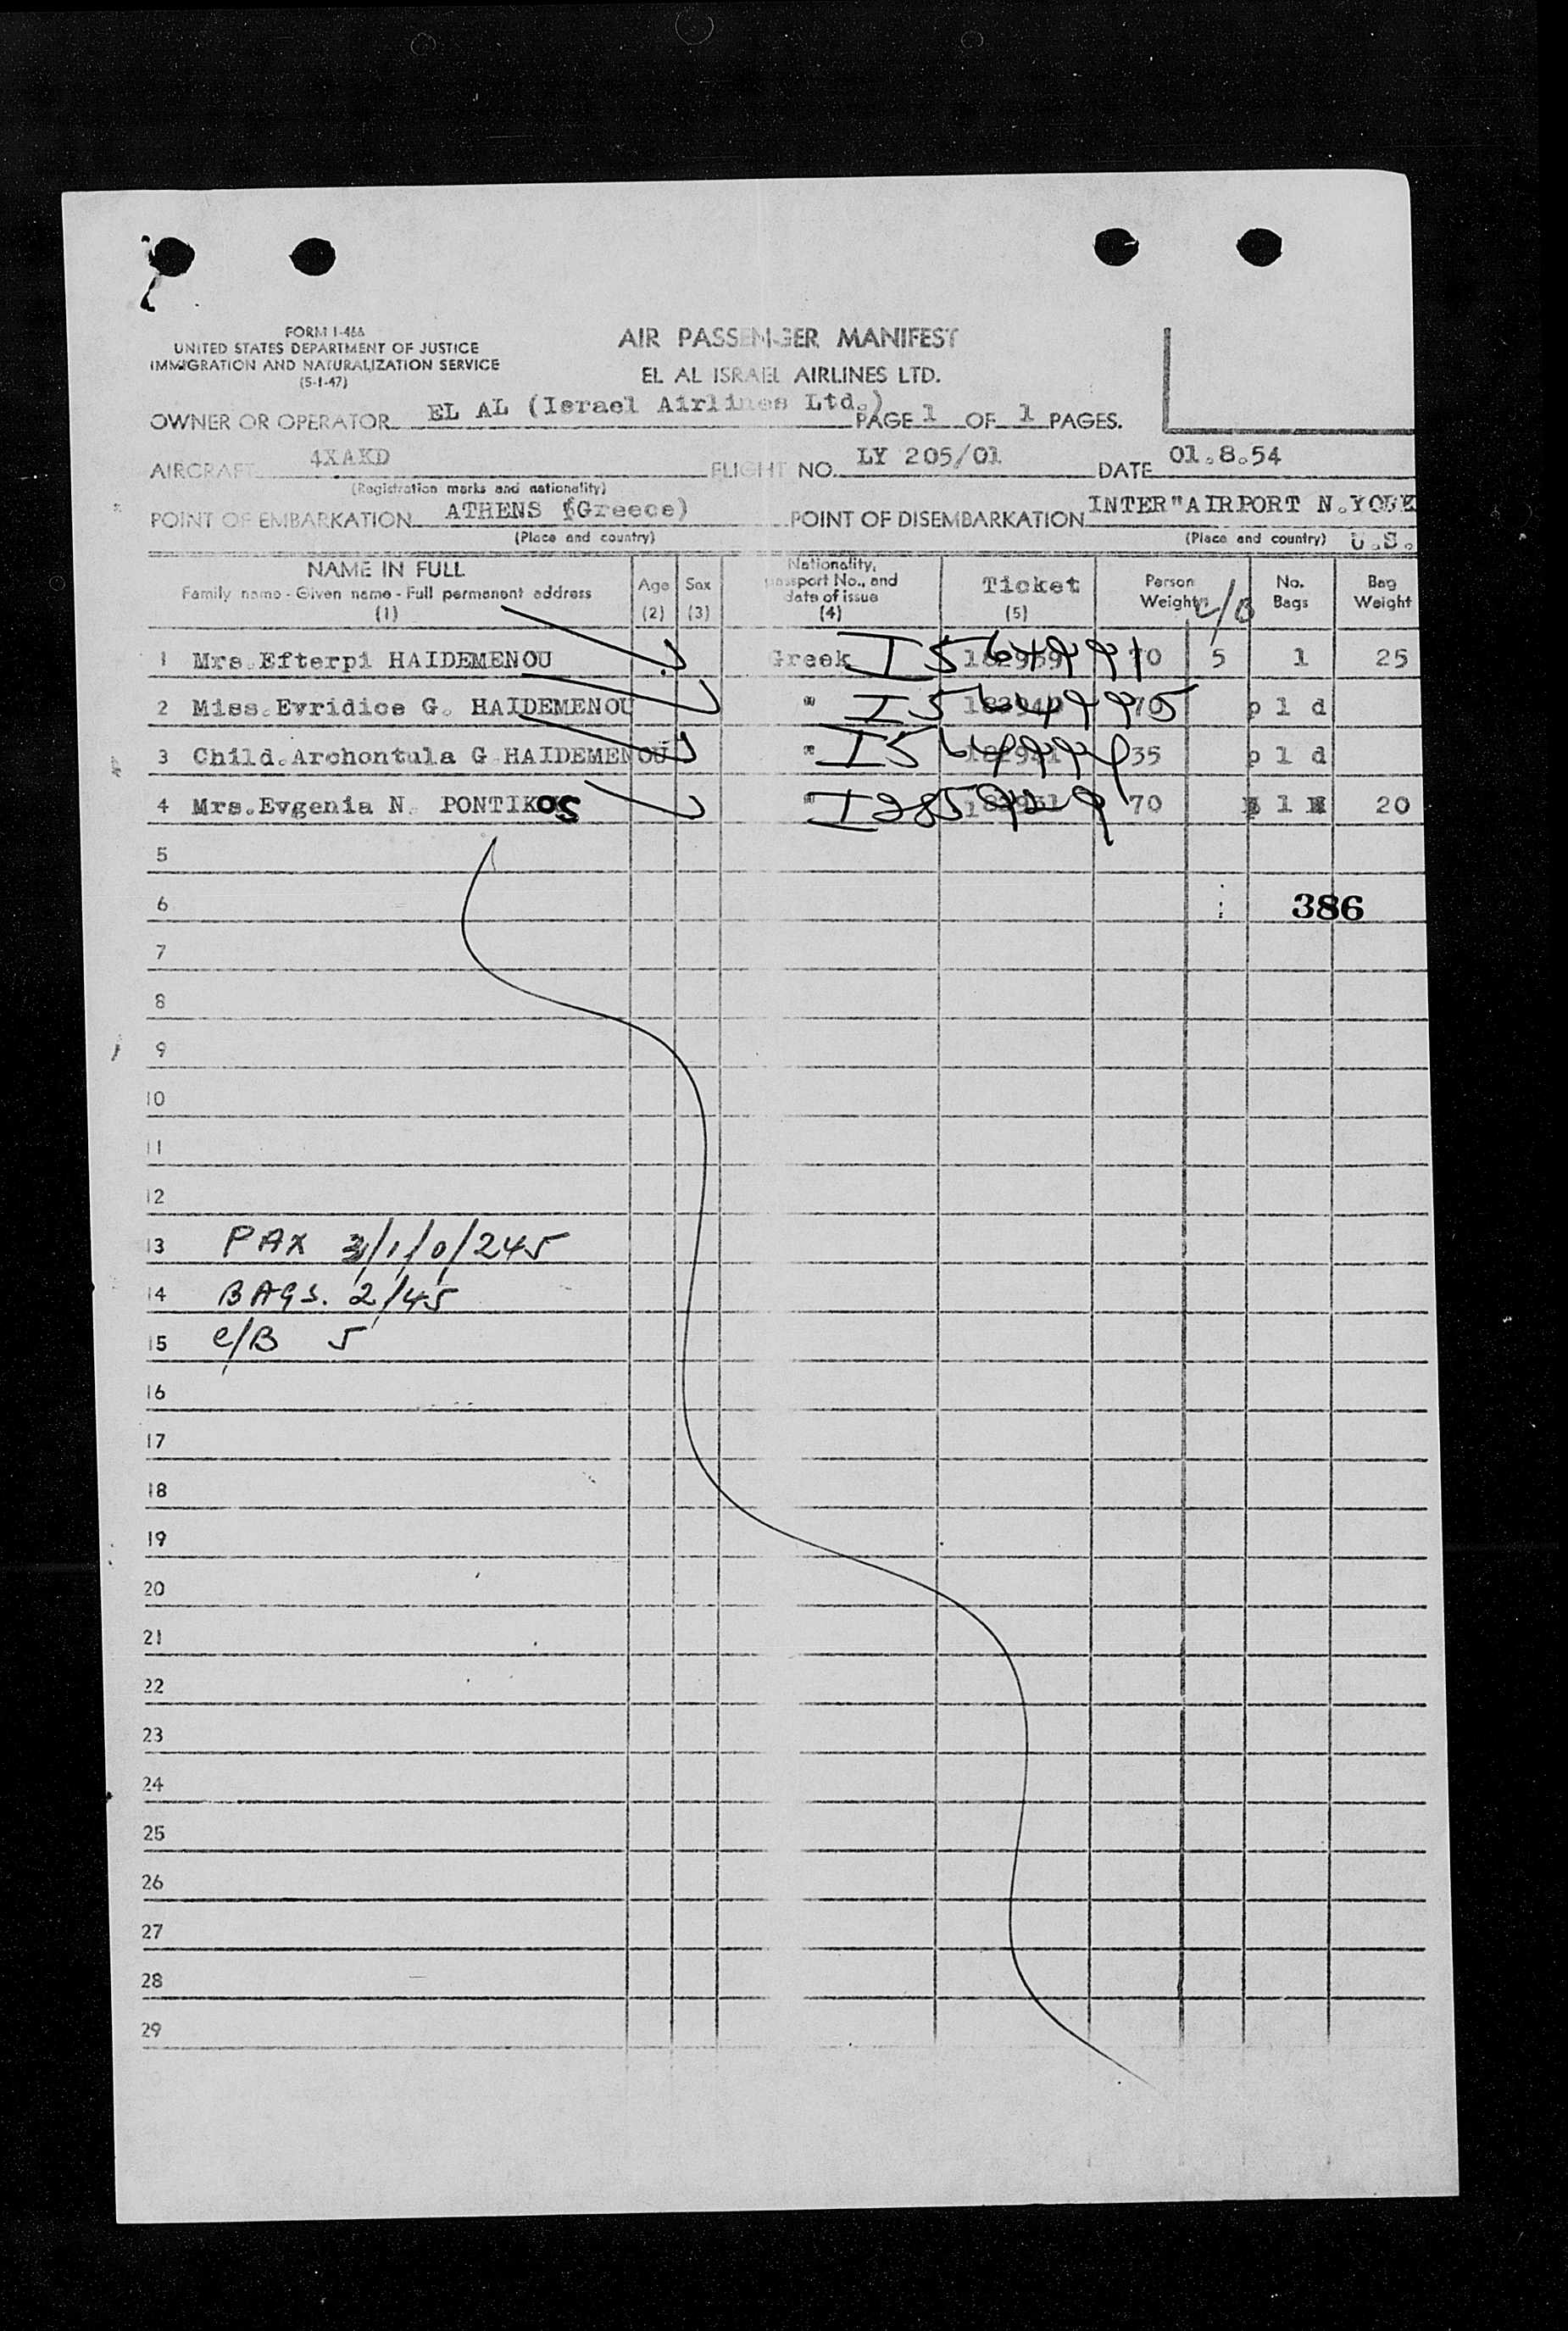 FORM I-466
UNITED STATES DEPARTMENT OF JUSTICE
IMMIGRATION AND NATURALIZATION SERVICE
(5-1-47)
AIR PASSENGER MANIFEST
EL AL ISRAEL AIRLINES LTD.
OWNER OR OPERATOR EL AL (Israel Airlines Ltd.) PAGE 1 OF 1 PAGES.
AIRCRAFT 4XAKD FLIGHT NO. LY 205/01 DATE 01.8.54
(Registration marks and nationality)
POINT OF EMBARKATION ATHENS (Greece) POINT OF DISEMBARKATION INTER"AIRPORT N.YORK
(Place and country) (Place and country) U.S.
NAME IN FULL Age Sex Nationality, passport No., and date of issue Ticket Person Weight C/B No. Bags Bag Weight
Family name - Given name - Full permanent address
(1) (2) (3) (4) (5)
1 Mrs.Efterpi HAIDEMENOU Greek I564 70 5 1 25
2 Miss.Evridice G. HAIDEMENOU " 70 p l d
3 Child.Archontula G HAIDEMENOU " 35 p l d
4 Mrs.Evgenia N. PONTIKOS " 70 1 20
5
6 386
7
8
9
10
11
12
13 PAX 3/1/0/245
14 BAGS. 2/45
15 C/B 5
16
17
18
19
20
21
22
23
24
25
26
27
28
29